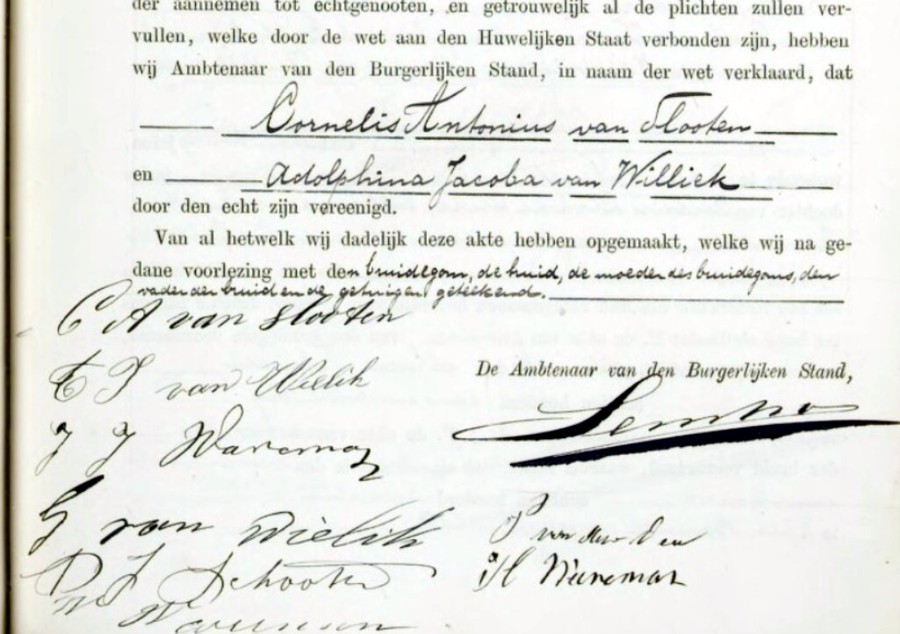 der aannemen tot echtgenooten, en getrouwelijk al de plichten zullen ver-
vullen, welke door de wet aan den Huwelijken Staat verbonden zijn, hebben
wij Ambtenaar van den Burgerlijken Stand, in naam der wet verklaard, dat
Cornelis Antonius van Slooten
en Adolphina Jacoba van Williek
door den echt zijn vereenigd.
Van al hetwelk wij dadelijk deze akte hebben opgemaakt, welke wij na ge-
dane voorlezing met den bruidegom, de bruid, de moeder des bruidegoms, den
vader der bruid en de getuigen, geteekend.
C A van Slooten
van Willik
De Ambtenaar van den Burgerlijken Stand,
J J Wareman
G van Wielik
P
H Wareman